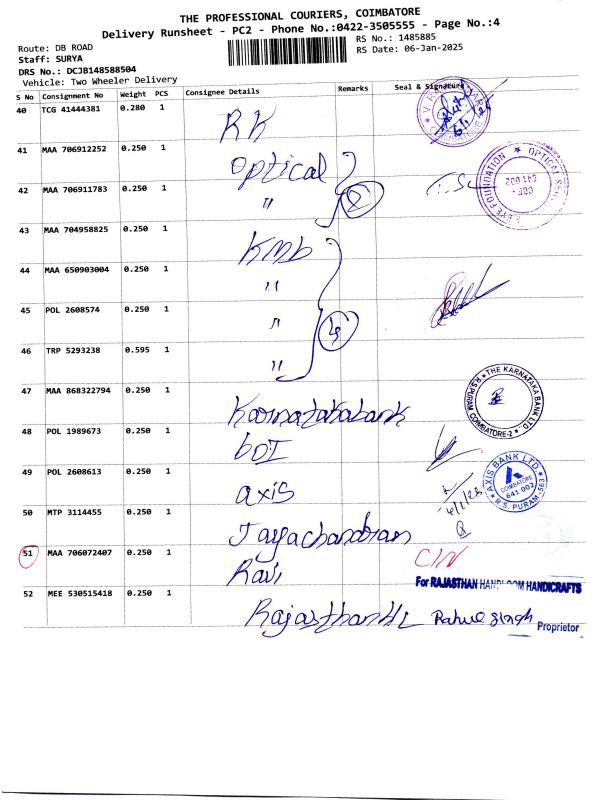 THE PROFESSIONAL COURIERS, COIMBATORE
Delivery Runsheet - PC2 - Phone No.:0422-3505555 - Page No.:4
Route: DB ROAD
RS No.: 1485885
Staff: SURYA
RS Date: 06-Jan-2025
DRS No.: DCJB148588504
Vehicle: Two Wheeler Delivery
S No Consignment No Weight PCS Consignee Details Remarks Seal & Signature
40 TCG 41444381 0.280 1 RK
41 MAA 706912252 0.250 1 Optical
42 MAA 706911783 0.250 1 " 2
EYE FOUNDATION ★ OPTICAL
CBE
641 002
43 MAA 704958825 0.250 1 KMb
44 MAA 650903004 0.250 1 "
45 POL 2608574 0.250 1 "
46 TRP 5293238 0.595 1 " 4
47 MAA 868322794 0.250 1 Karnatakabank
THE KARNATAKA BANK LTD. ★ R.S.PURAM COIMBATORE-2 ★
48 POL 1989673 0.250 1 bOI
49 POL 2608613 0.250 1 axis
AXIS BANK LTD.
COIMBATORE
641 002
R.S. PURAM-563
50 MTP 3114455 0.250 1 Jayachandran
51 MAA 706072407 0.250 1 Ravi CIN
For RAJASTHAN HANDLOOM HANDICRAFTS
52 MEE 530515418 0.250 1 Rajasthan HL Rahul Singh
Proprietor